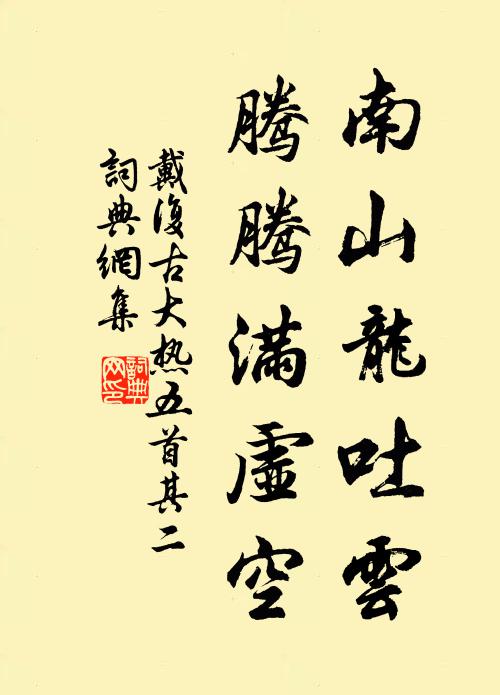 南山龍吐雲
騰騰滿虛空
戴復古大熱五首其二
詞典網集
詞典网印